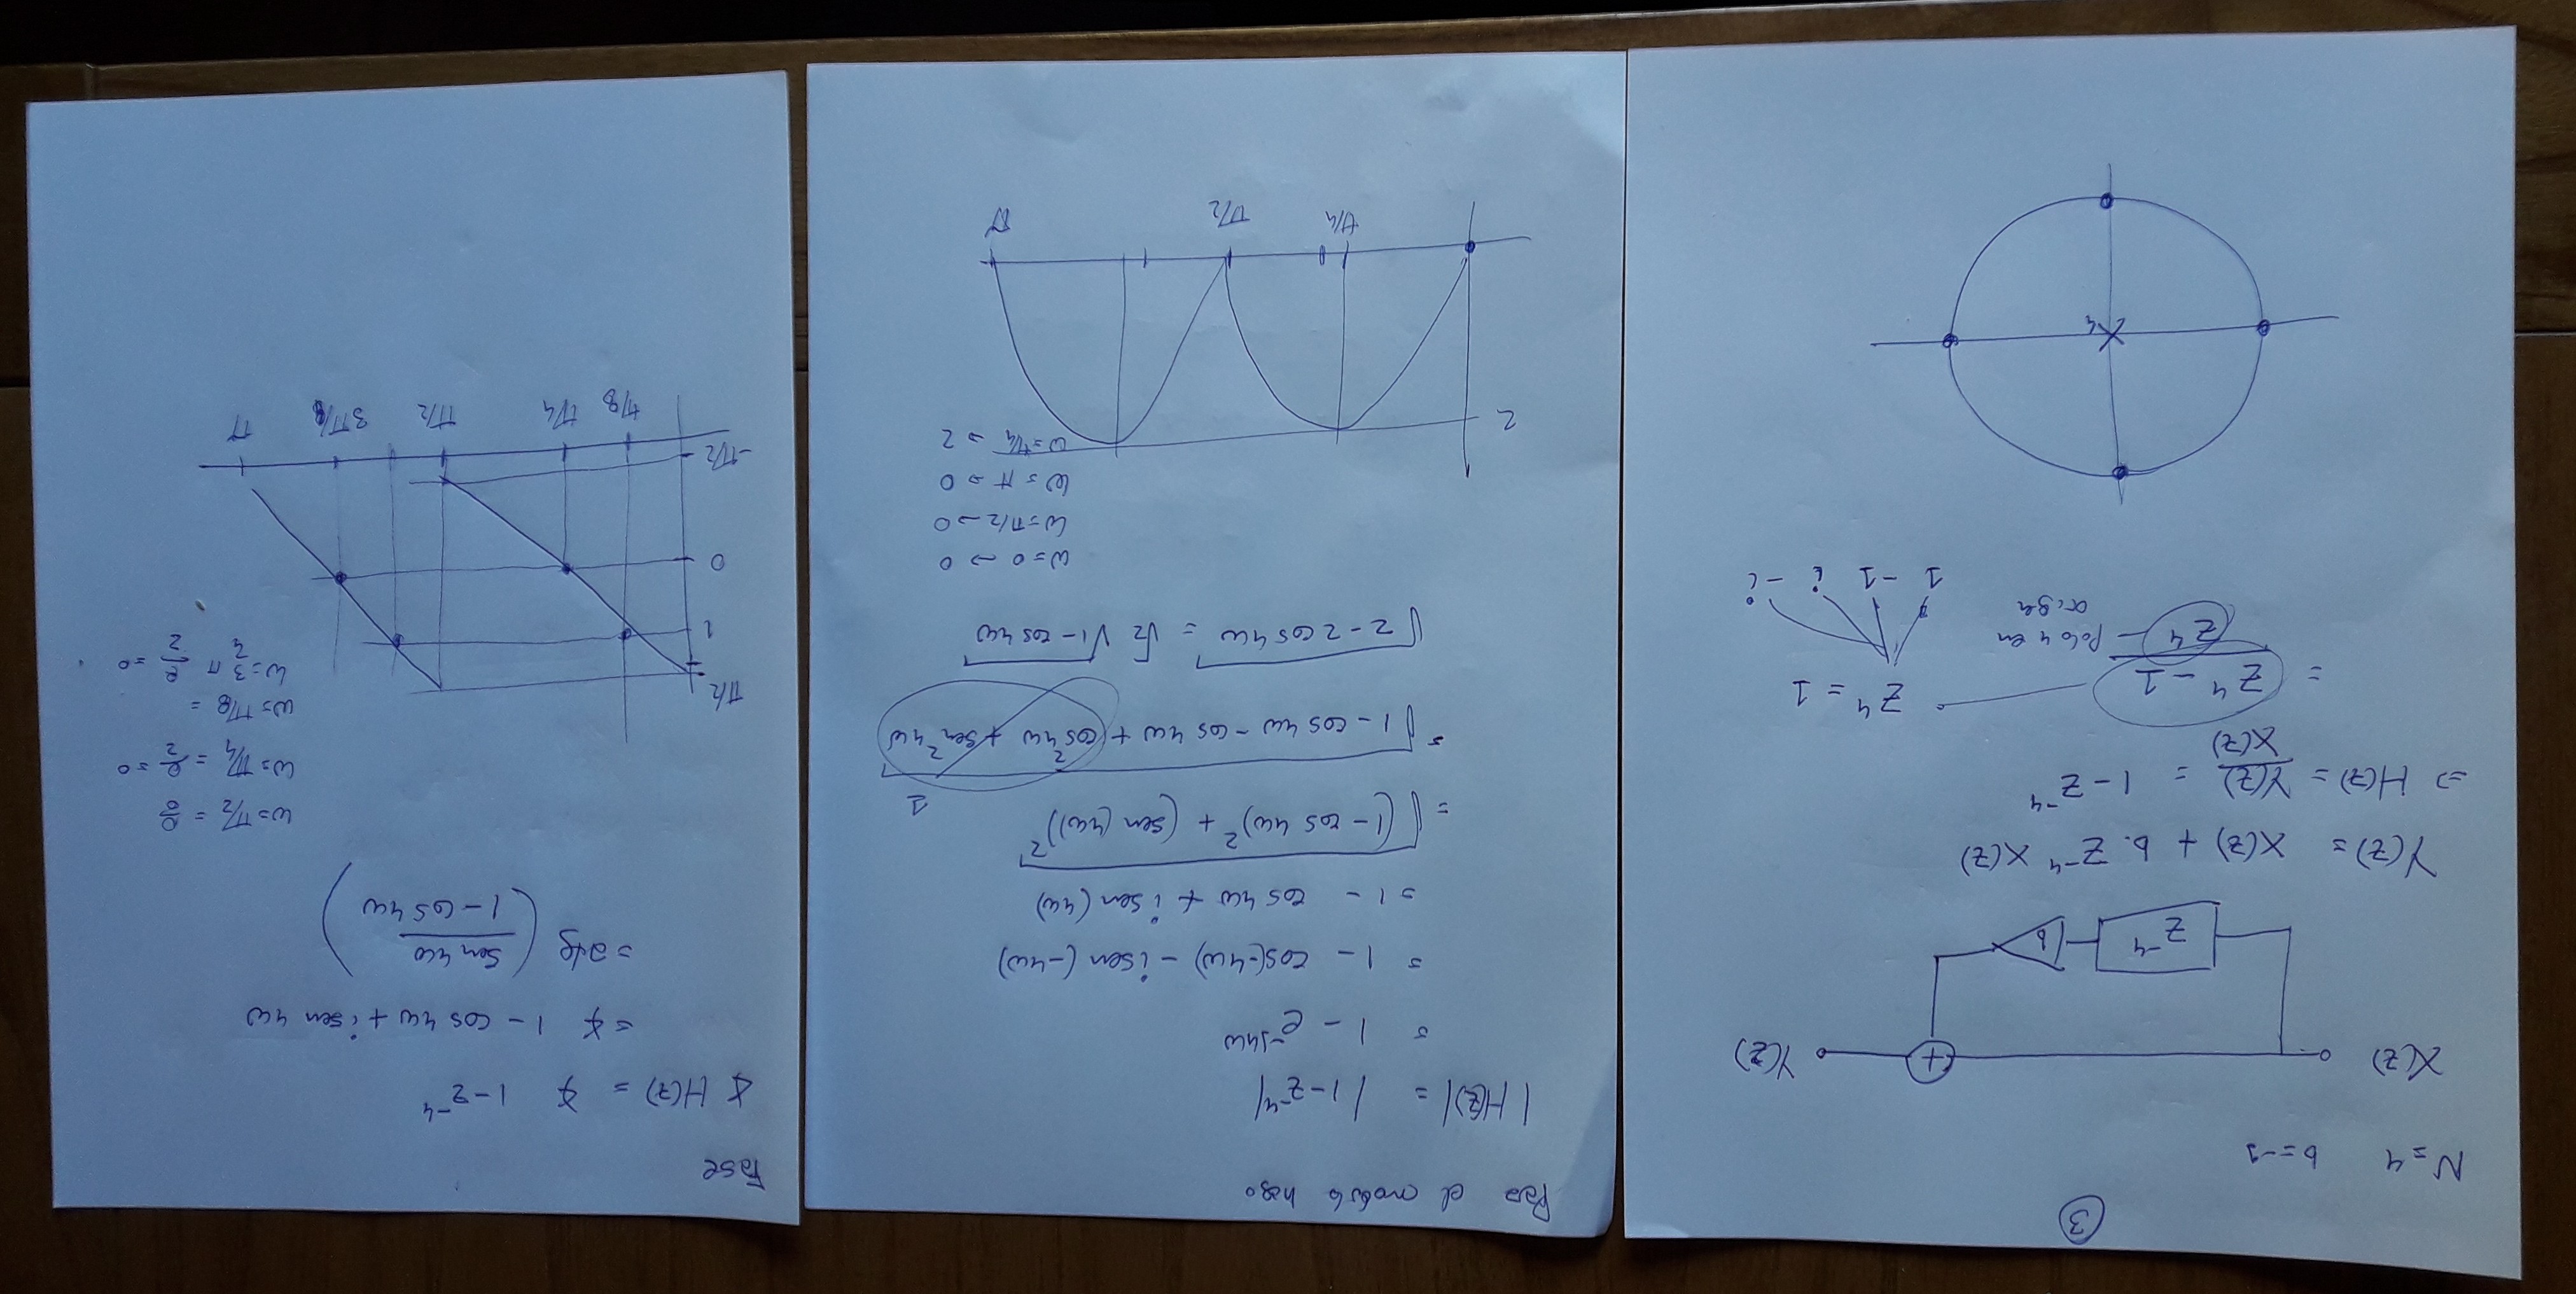 ③
N=4 b=-1
X(z) + Y(z)
z⁻⁴ b
Y(z) = X(z) + b. z⁻⁴ X(z)
⇒ H(z) = Y(z)/X(z) = 1-z⁻⁴
= (z⁴ - 1)/z⁴ z⁴ = 1
Polo 4 en
origen
1 -1 i -i
4
el modulo hago
|H(z)| = |1-z⁻⁴|
= 1 - e^(-j4ω)
= 1 - cos(-4ω) - i sen (-4ω)
= 1 - cos 4ω + i sen (4ω)
= √((1-cos 4ω)² + (sen (4ω))²)
1
= √(1 - cos 4ω - cos 4ω + cos² 4ω + sen² 4ω)
√(2-2 cos 4ω) = √2 √(1-cos 4ω)
ω=0 → 0
ω=π/2 → 0
ω=π → 0
ω=π/4 → 2
2
π/4 π/2 π
Fase
∡ H(z) = ∡ 1-z⁻⁴
= ∡ 1 - cos 4ω + i sen 4ω
= atg (sen 4ω / (1-cos 4ω))
ω=π/2 = 0/0
ω=π/4 = 0/2 = 0
ω=π/8 =
ω=3/4 π 0/2 = 0
π/2
1
0
-π/2
π/8 π/4 π/2 π